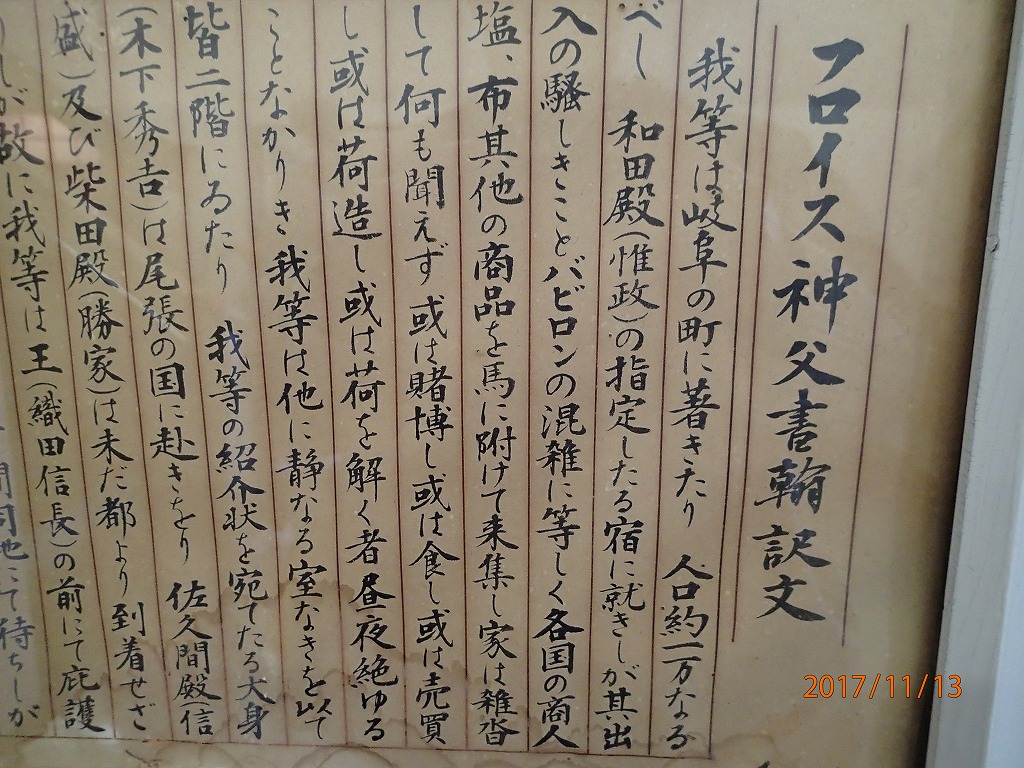 フロイス神父書翰訳文
我等は岐阜の町に著きたり 人口約一万なる
べし 和田殿(惟政)の指定したる宿に就きしが其出
入の騒しきことバビロンの混雑に等しく各国の商人
塩、布其他の商品を馬に附けて来集し家は雑沓
して何も聞えず或は賭博し或は食し或は売買
し或は荷造し或は荷を解く者昼夜絶ゆる
ことなかりき我等は他に静なる室なきを以て
皆二階にゐたり 我等の紹介状を宛てたる大身
(木下秀吉)は尾張の国に赴きをり 佐久間殿(信
盛)及び柴田殿(勝家)は未だ都より到着せざ
りしが故に我等は王(織田信長)の前にて庇護
間同地にて待ちしが
2017/11/13